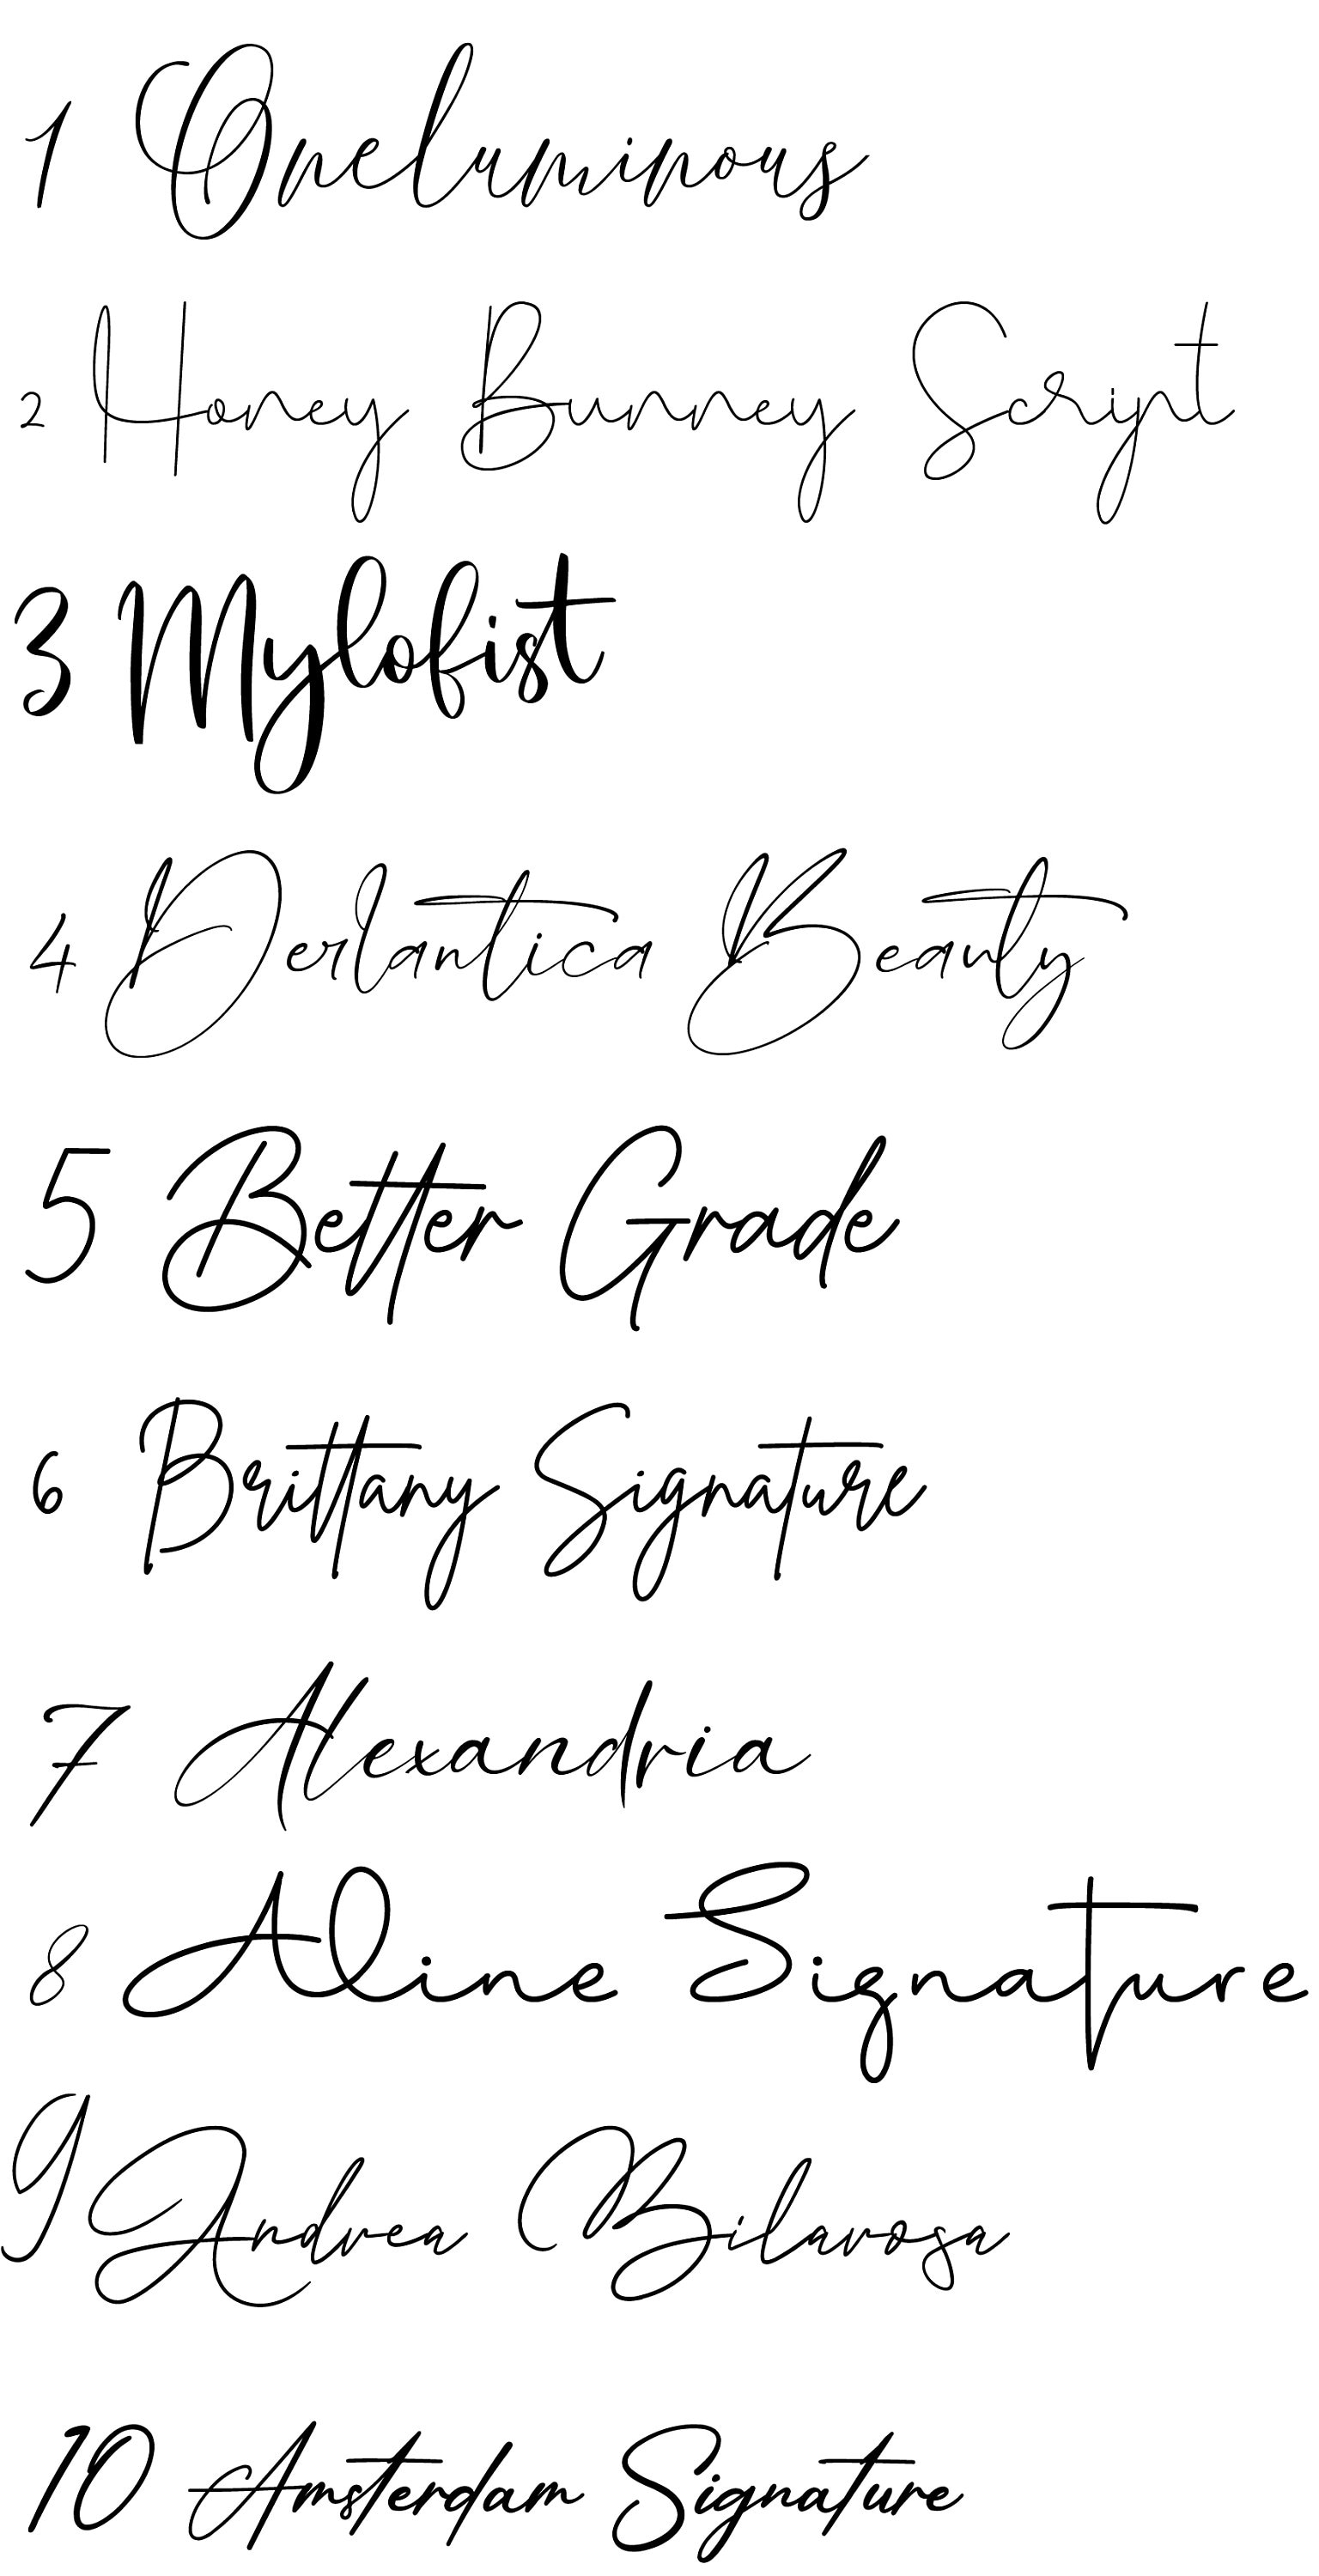 1 Oneluminous
2 Honey Bunney Script
3 Mylofist
4 Derlantica Beauty
5 Better Grade
6 Brittany Signature
7 Alexandria
8 Aline Signature
9 Andrea Bilarosa
10 Amsterdam Signature